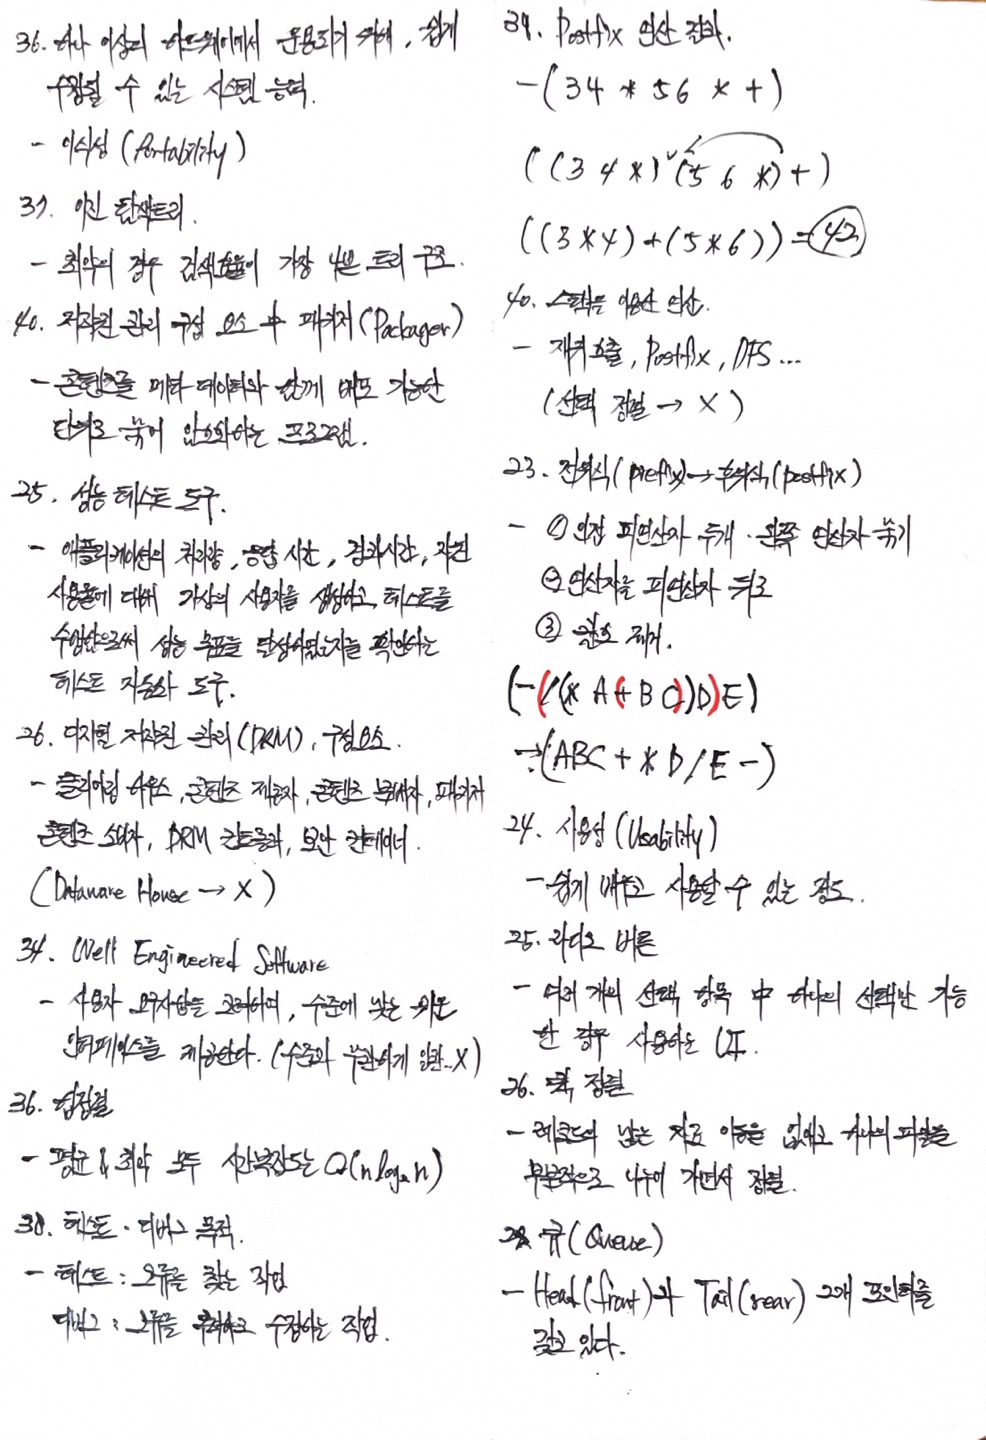 36. 하나 이상의 하드웨어에서 운용되기 위해, 쉽게
수정될 수 있는 시스템 능력.
- 이식성 (Portability)
37. 이진 탐색트리.
- 최악의 경우 검색효율이 가장 나쁜 트리 구조.
40. 저작권 관리 구성 요소 中 패키저(Packager)
- 콘텐츠를 메타 데이터와 함께 배포 가능한
단위로 묶어 암호화하는 프로그램.
25. 성능 테스트 도구.
- 애플리케이션의 처리량, 응답 시간, 경과시간, 자원
사용률에 대해 가상의 사용자를 생성하고 테스트를
수행함으로써 성능 목표를 달성하였는지를 확인하는
테스트 자동화 도구.
26. 디지털 저작권 관리(DRM), 구성요소.
- 클리어링 하우스, 콘텐츠 제공자, 콘텐츠 분배자, 패키저
콘텐츠 소비자, DRM 컨트롤러, 보안 컨테이너.
(Dataware House → X)
34. Well Engineered Software
- 사용자 요구사항을 고려하며, 수준에 맞는
인터페이스를 제공한다. (수준과 무관하게 일관..X)
36. 힙정렬
- 평균 & 최악 모두 시간복잡도는 O(nlog₂n)
38. 테스트·디버그 목적.
- 테스트 : 오류를 찾는 작업
디버그 : 오류를 수정하는 작업.
39. Postfix 연산 결과.
-(34 * 56 * +)
((3 4 *) (5 6 *) +)
((3*4)+(5*6)) = 42
40. 스택을 이용한 연산.
- 재귀호출, Postfix, DFS...
(선택 정렬 → X)
23. 전위식(prefix)→후위식(postfix)
- ① 인접 피연산자 두개·왼쪽 연산자 묶기
② 연산자을 피연산자 뒤로
③ 괄호 제거.
(-(/(* A(+ B C))D)E)
→(ABC + * D / E -)
24. 사용성 (Usability)
- 쉽게 배우고 사용할 수 있는 정도.
25. 라디오 버튼
- 여러 개의 선택 항목 中 하나의 선택만 가능
한 경우 사용하는 UI.
26. 퀵 정렬
- 레코드의 많은 자료 이동을 없애고 하나의 파일을
부분적으로 나누어 가면서 정렬.
28. 큐(Queue)
- Head(front)와 Tail(rear) 2개 포인터를
갖고 있다.